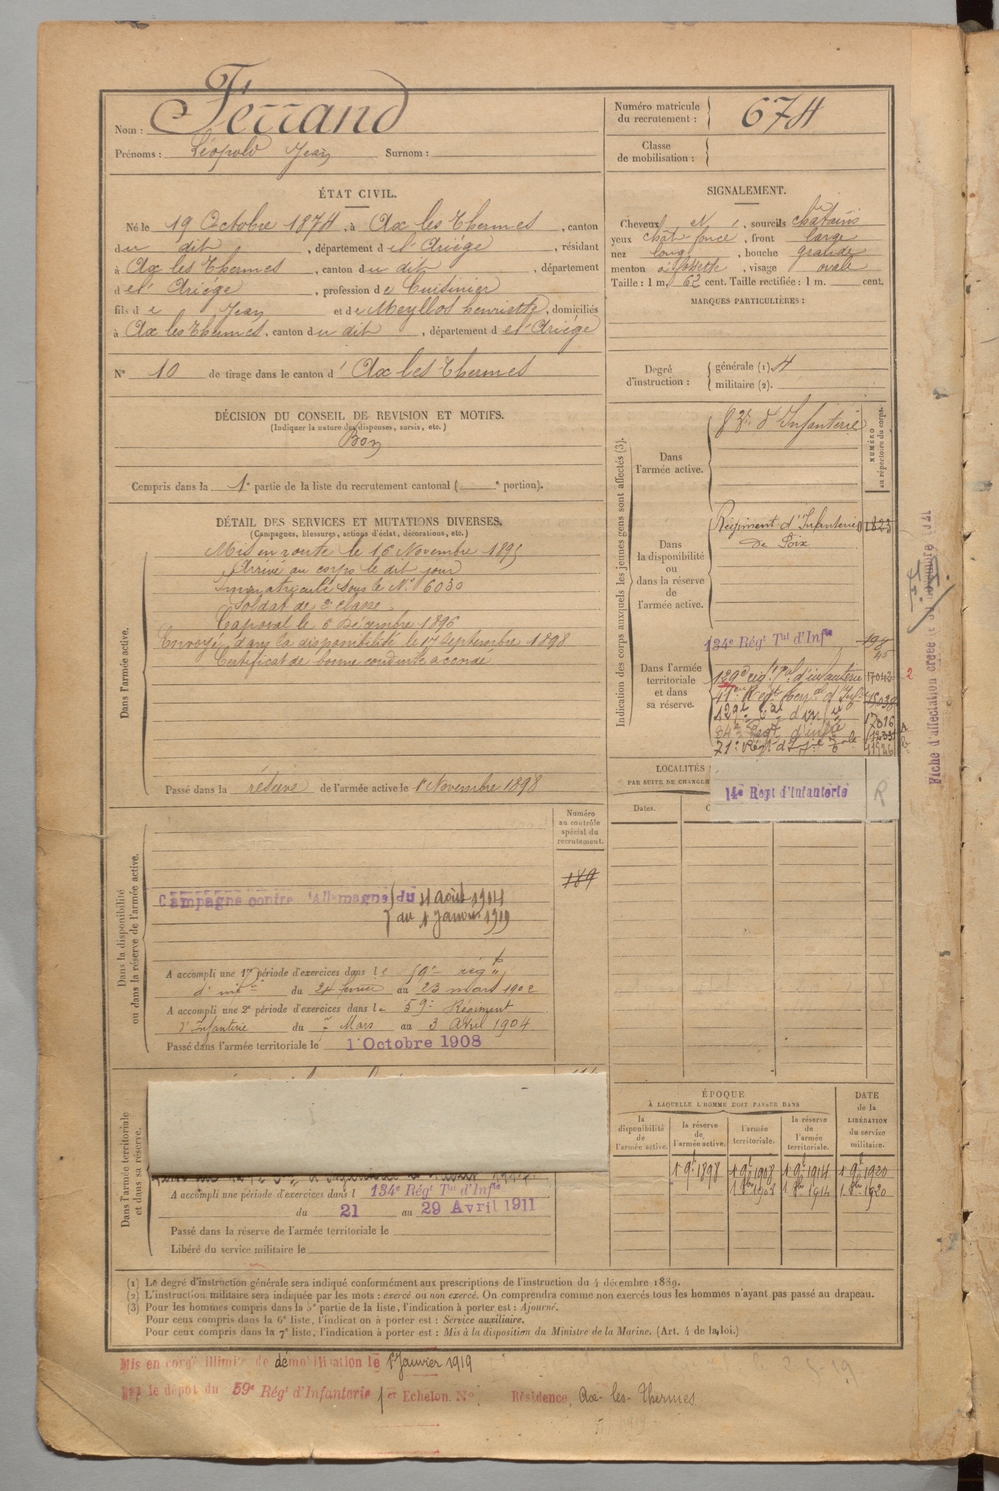 Nom : Ferrand
Prénoms : Léopold Jean Surnom :
Numéro matricule du recrutement : 674
Classe de mobilisation :
ÉTAT CIVIL.
Né le 19 Octobre 1874, à Ax les Thermes, canton
du dit, département de l'Ariége, résidant
à Ax les Thermes, canton du dit, département
de l'Ariége, profession de Cuisinier
fils de Jean et de Meyllos henriette, domiciliés
à Ax les Thermes, canton du dit, département de l'Ariége
N° 10 de tirage dans le canton d' Ax les Thermes
SIGNALEMENT.
Cheveux N, sourcils châtains
yeux chât foncé, front large
nez long, bouche grande
menton à fossette, visage ovale
Taille : 1 m. 62 cent. Taille rectifiée : 1 m. cent.
MARQUES PARTICULIÈRES :
Degré d'instruction : générale (1). 4
militaire (2).
DÉCISION DU CONSEIL DE REVISION ET MOTIFS.
(Indiquer la nature des dispenses, sursis, etc.)
Bon
Compris dans la 1e partie de la liste du recrutement cantonal ( e portion).
DÉTAIL DES SERVICES ET MUTATIONS DIVERSES.
(Campagnes, blessures, actions d'éclat, décorations, etc.)
Dans l'armée active.
Mis en route le 16 Novembre 1895
Arrivé au corps le dit jour
Immatriculé sous le N° 6030
Soldat de 2e classe
Caporal le 6 Décembre 1896
Envoyé dans la disponibilité le 17 Septembre 1898
Certificat de bonne conduite accordé
Passé dans la réserve de l'armée active le 1r Novembre 1898
Indication des corps auxquels les jeunes gens sont affectés (3).
NUMÉRO au répertoire du corps.
Dans l'armée active.
d'Infanterie
Dans la disponibilité ou dans la réserve de l'armée active.
Régiment d'Infanterie 01823
De Foix
Dans l'armée territoriale et dans sa réserve.
134e Régt Tal d'Infie
129e
14e Regt d'Infanterie R
LOCALITÉS
PAR SUITE DE CHANGE
Dates.
Fiche d'affectation créée
Dans la disponibilité ou dans la réserve de l'armée active.
Numéro au contrôle spécial du recrutement.
189
Campagne contre l'Allemagne du 4 Août 1914
au 1 Janvier 1919
A accompli une 1re période d'exercices dans le 59e régt
d'infie du 24 février au 23 mars 1902
A accompli une 2e période d'exercices dans le 59e Régiment
d'Infanterie du Mars au 3 Avril 1904
Passé dans l'armée territoriale le 1r Octobre 1908
Dans l'armée territoriale et dans sa réserve.
A accompli une période d'exercices dans l 134e Régt Tal d'Infie
du 21 au 29 Avril 1911
Passé dans la réserve de l'armée territoriale le
Libéré du service militaire le
ÉPOQUE
À LAQUELLE L'HOMME DOIT PASSER DANS
la disponibilité de l'armée active.
la réserve de l'armée active.
l'armée territoriale.
la réserve de l'armée territoriale.
DATE de la LIBÉRATION du service militaire.
1 9t 1898 1 9t 1908 1 9t 1914 1 9t 1920
1 8bre 1908 1 8bre 1914 1 8bre 1920
(1) Le degré d'instruction générale sera indiqué conformément aux prescriptions de l'instruction du 4 décembre 1889.
(2) L'instruction militaire sera indiquée par les mots : exercé ou non exercé. On comprendra comme non exercés tous les hommes n'ayant pas passé au drapeau.
(3) Pour les hommes compris dans la 5e partie de la liste, l'indication à porter est : Ajourné.
Pour ceux compris dans la 6e liste, l'indication à porter est : Service auxiliaire.
Pour ceux compris dans la 7e liste, l'indication à porter est : Mis à la disposition du Ministre de la Marine. (Art. 4 de la loi.)
Mis en congé illimité de démobilisation le 1r Janvier 1919
Par le dépôt du 59e Régt d'Infanterie 1er Echelon. N° Résidence Ax-les-Thermes